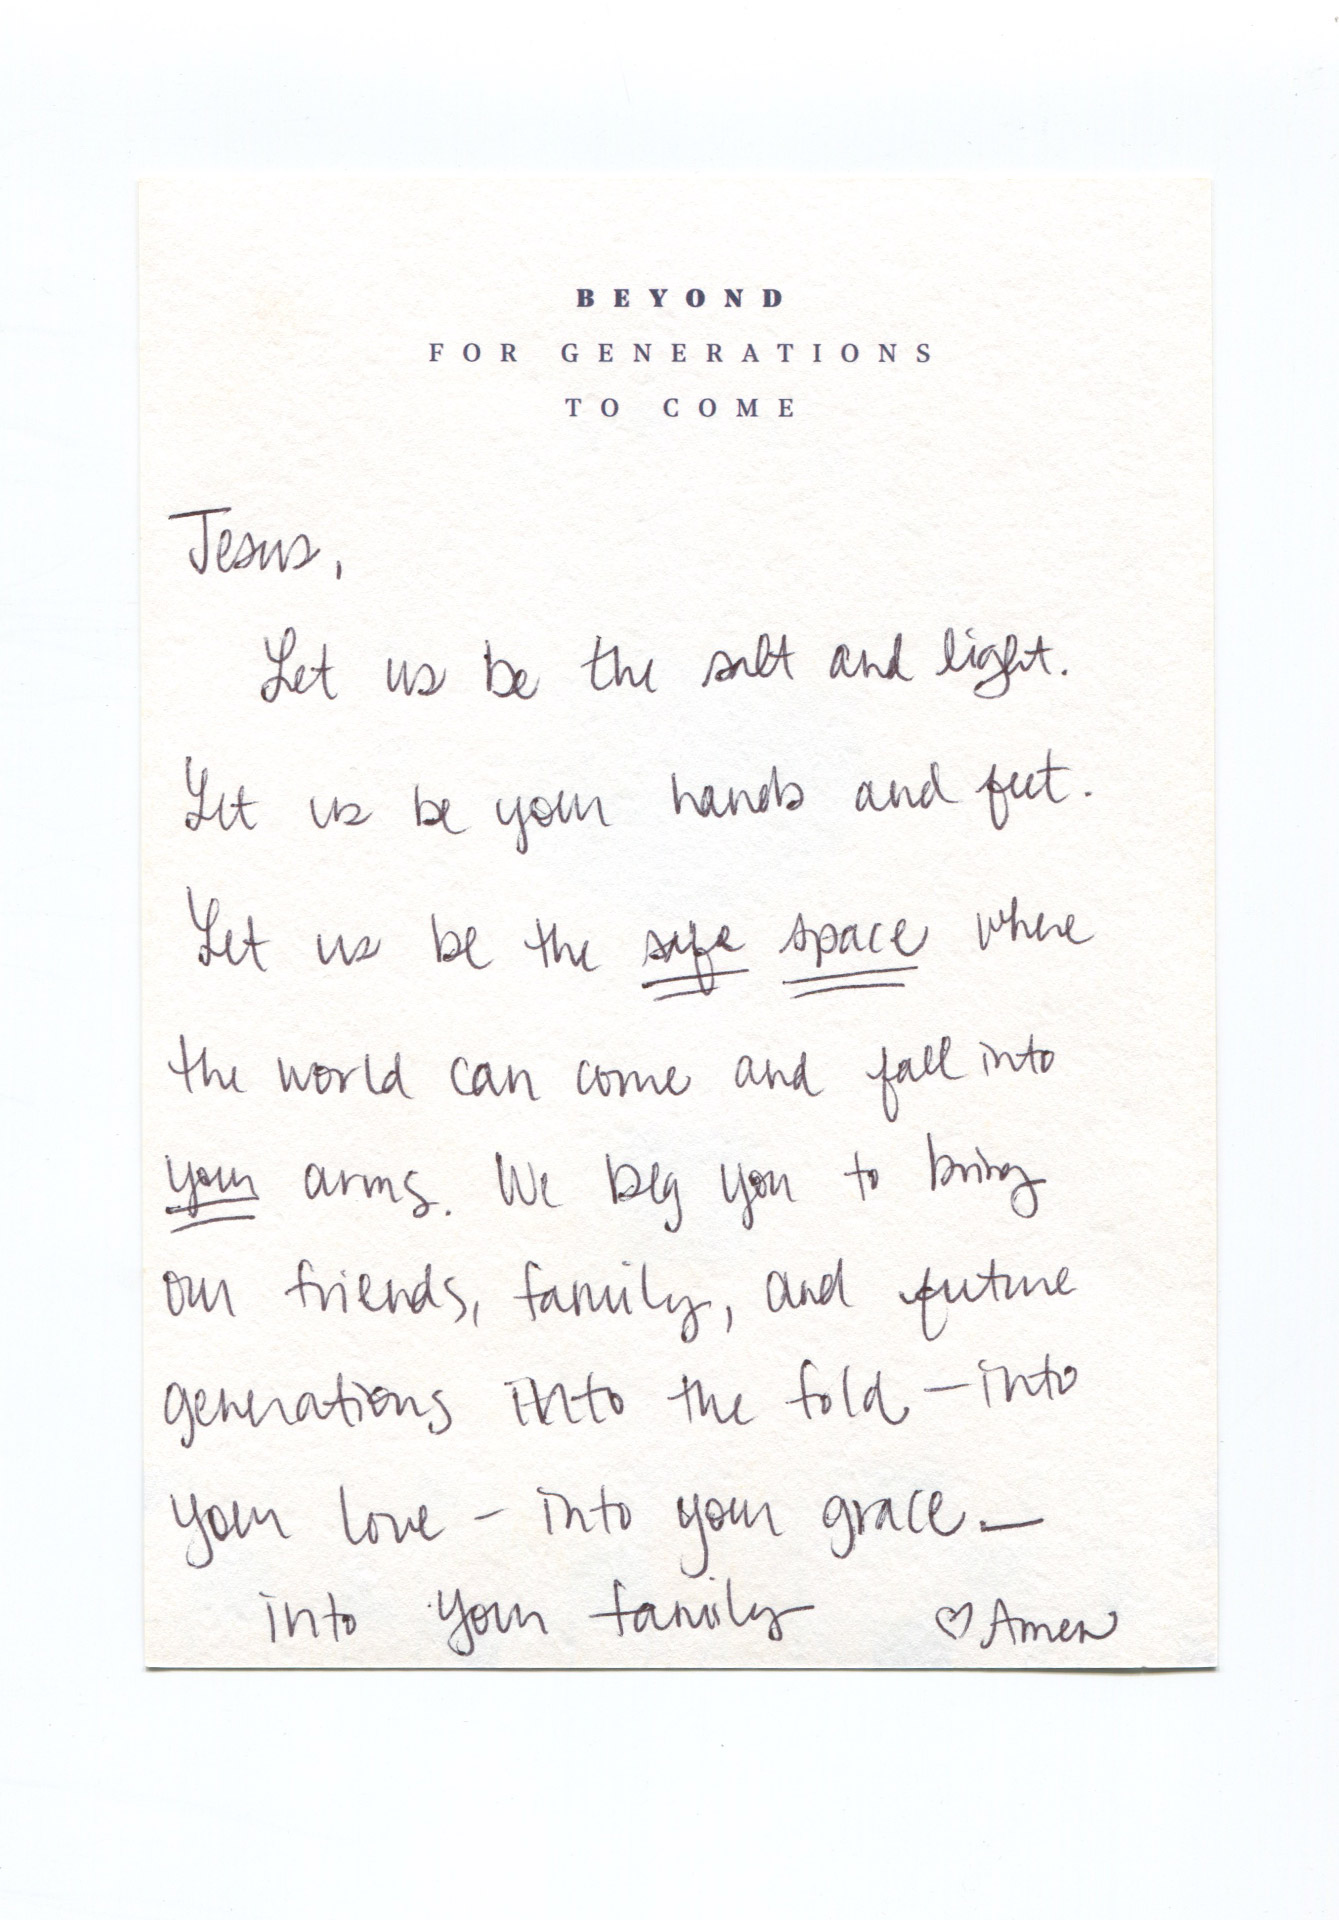 BEYOND
FOR GENERATIONS
TO COME
Jesus,
Let us be the salt and light.
Let us be your hands and feet.
Let us be the safe space where
the world can come and fall into
your arms. We beg you to bring
our friends, family, and future
generations into the fold – into
your love – into your grace –
into your family ♡ Amen